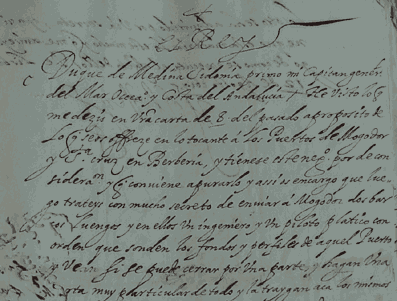 El Rey
Duque de Medina Cidonia primo mi Capitan gener.
del Mar Oceaº y Costa del Andalucia He visto lo q
me dezis en vra carta de 8 del pasado a proposito de
lo q se os offreze en lo tocante a los Puertos de Mogodor
y Sta cruz en Berberia, y tienese este negº por de con
sideraon y q conviene apurarlo y assi os encargo que lue
go trateys con mucho secreto de enviar a Mogodor dos bar
cos luengos y en ellos Un ingeniero y Un piloto platico con
orden que sonden los fondos y de aquel Puerto
y vean si se puede cerrar por Una parte, y hagan Una
muy particular de todo y la traygan aca los mismos